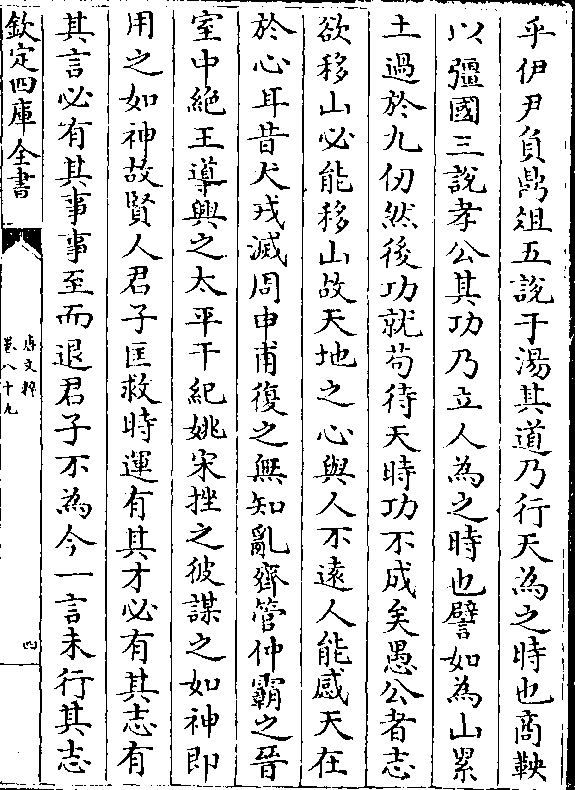 乎伊尹負鼎俎五說于湯其道乃行天為之時也商鞅
以彊國三說孝公其功乃立人為之時也譬如為山累
土過於九仞然後功就苟待天時功不成矣愚公者志
欲移山必能移山故天地之心與人不遠人能感天在
於心耳昔犬戎滅周申甫復之無知亂齊管仲霸之晉
室中絶王導興之太平干紀姚宋挫之彼謀之如神即
用之如神故賢人君子匡救時運有其才必有其志有
其言必有其事事至而退君子不為今一言未行其志
欽定四庫全書
唐文粹
卷八十九
四